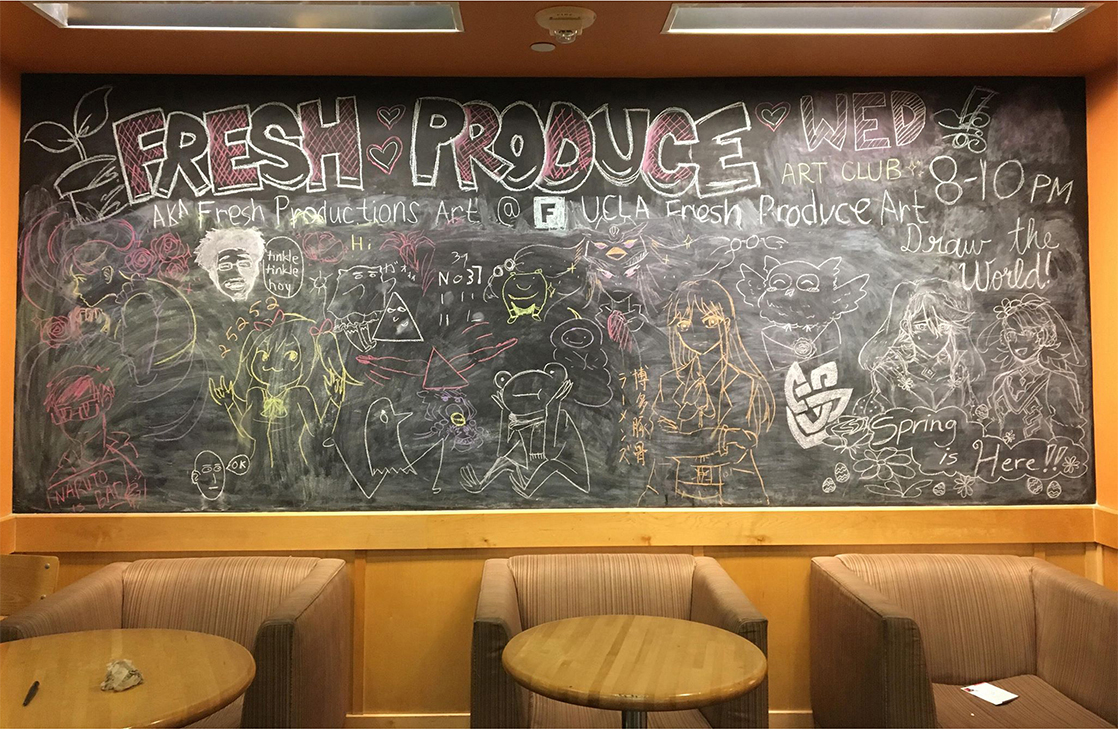 FRESH PRODUCE WED
ART CLUB
8-10 PM
AKA Fresh Productions Art @ F UCLA Fresh Produce Art
Draw the
World!
tinkle
tinkle
hoy
Hi
No 37
25252
OK
NARUTO
IS
博多豚骨
ラーメンズ
Spring
is Here!!